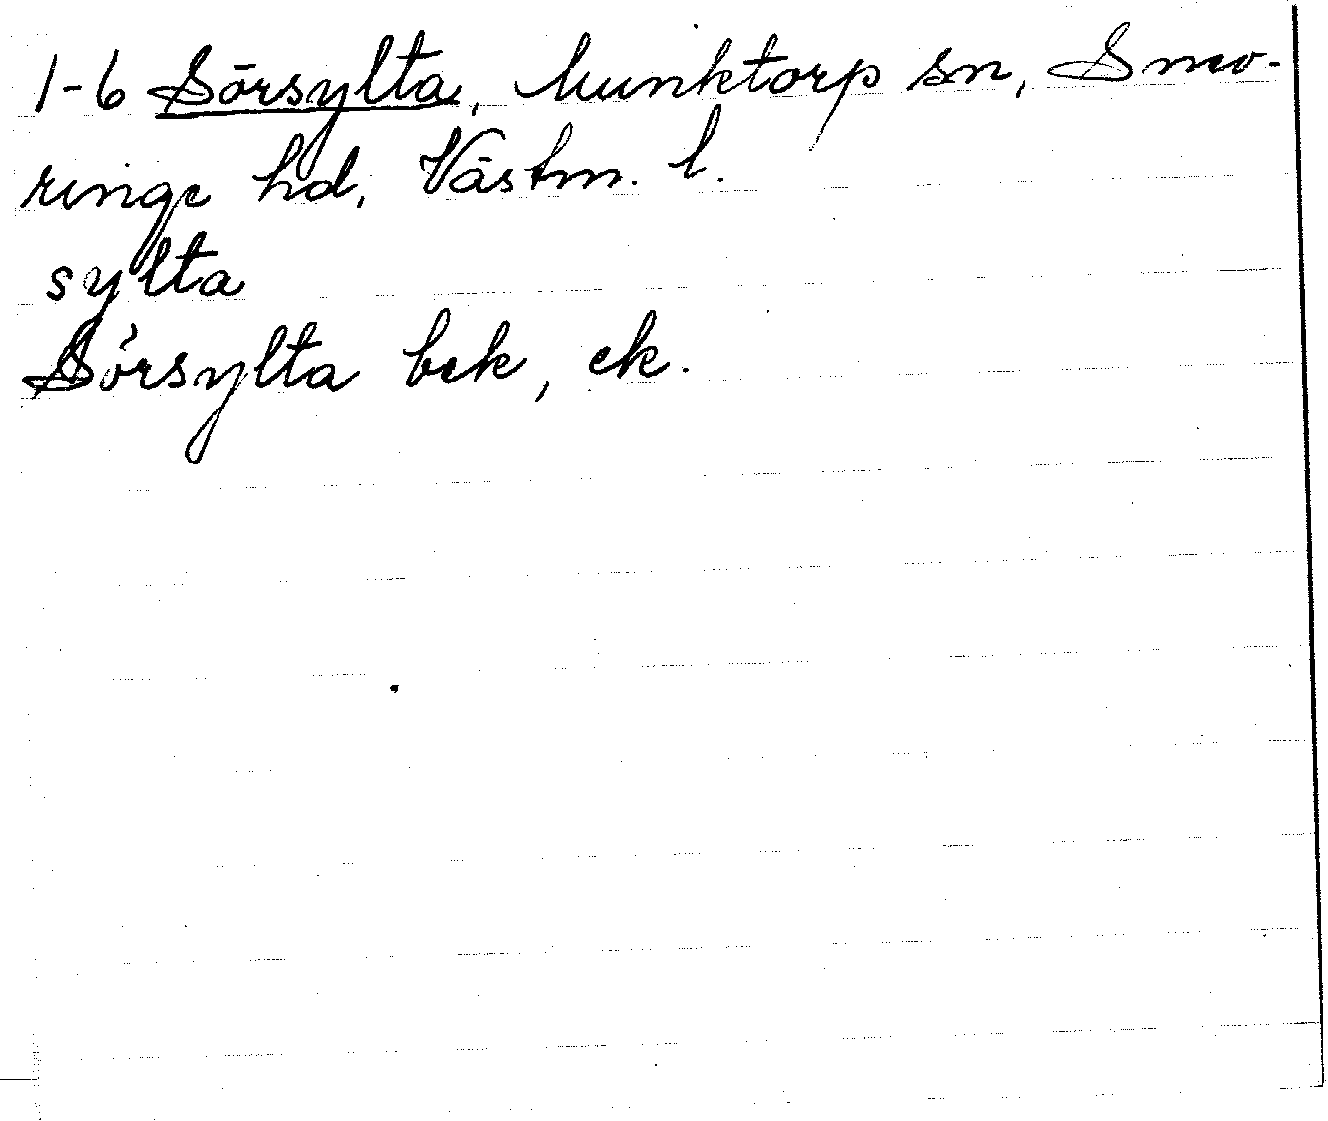 1-6 Sörsylta, Munktorp sn, Snev-
ringe hd, Västm. l.
sylta
Sörsylta bek, ek.